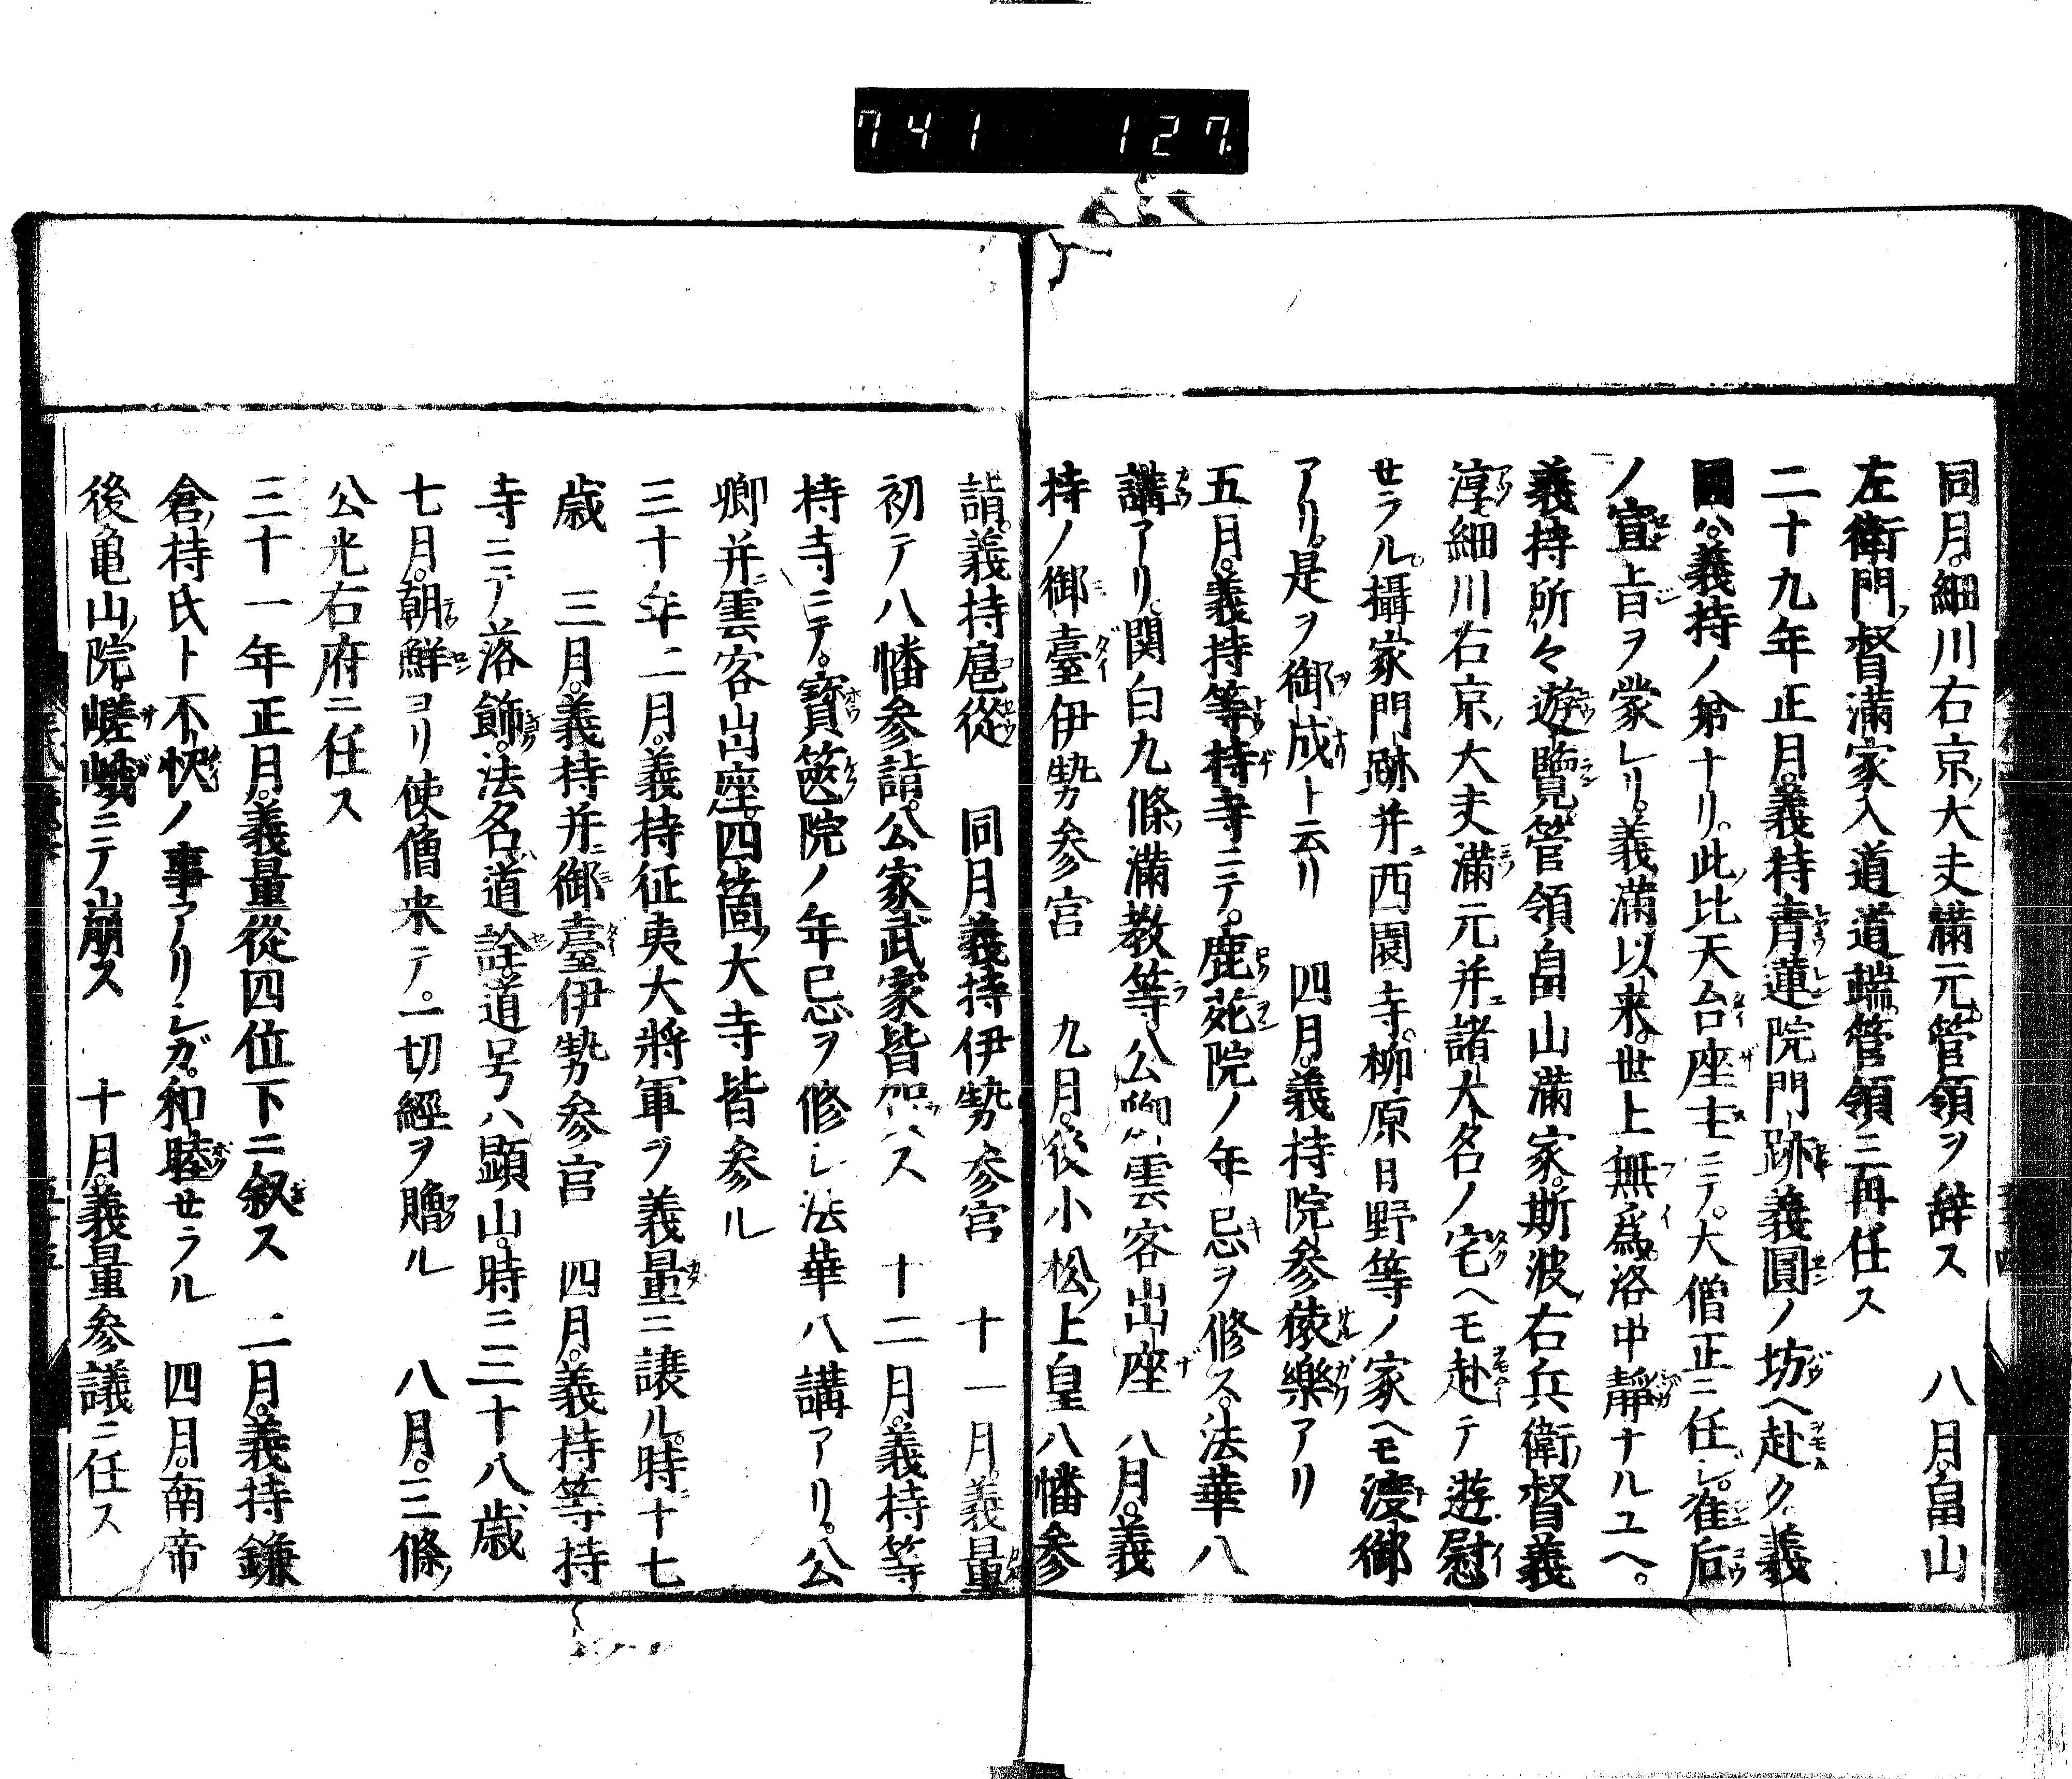 741 127.
同月。細川右京大夫滿元。管領ヲ辭ス 八月。畠山
左衛門督滿家入道道端。管領ニ再任ス
二十九年正月。義持青蓮院門跡義圓ノ坊ヘ赴ク。義
圓ハ。義持ノ弟ナリ。此比天台座主ニテ。大僧正ニ任シ。准后
ノ宣旨ヲ蒙レリ。義滿以来。世上無爲。洛中靜ナルユヘ。
義持所々遊覽。管領畠山滿家。斯波右兵衛督義
淳。細川右京大夫滿元并諸大名ノ宅ヘモ赴テ遊慰
セラル。攝家門跡并西園寺。柳原日野等ノ家ヘモ渡御
アリ。是ヲ御成ト云リ 四月。義持院参猿樂アリ
五月。義持等持寺ニテ。鹿苑院ノ年忌ヲ修ス。法華八
講アリ。関白九條滿教等。公卿雲客出座 八月。義
持ノ御臺伊勢参宮 九月。後小松上皇八幡参
詣。義持扈從 同月義持伊勢参宮 十一月。義量
初テ八幡参詣。公家武家皆從ス 十二月。義持等
持寺ニテ。寳篋院ノ年忌ヲ修シ法華八講アリ。公
卿并雲客出座。四箇大寺皆参ル
三十年二月。義持征夷大將軍ヲ義量ニ譲ル。時十七
歳 三月。義持并御臺伊勢参宮 四月。義持等持
寺ニテ落飾。法名道詮。道号ハ顯山。時ニ三十八歳
七月。朝鮮ヨリ使僧来テ。一切經ヲ贈ル 八月。三條
公光右府ニ任ス
三十一年正月。義量從四位下ニ叙ス 二月。義持鎌
倉持氏ト不快ノ事アリシガ。和睦セラル 四月。南帝
後亀山院。嵯峨ニテ崩ス 十月。義量参議ニ任ス